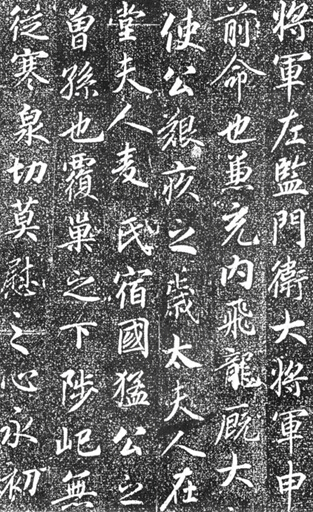 將軍左監門衛大將軍申
前命也兼充内飛龍厩大
使公艱疚之歲太夫人在
堂夫人麦氏宿國猛公之
曾孫也覆巢之下陟屺無
從寒泉切莫慰之心永初